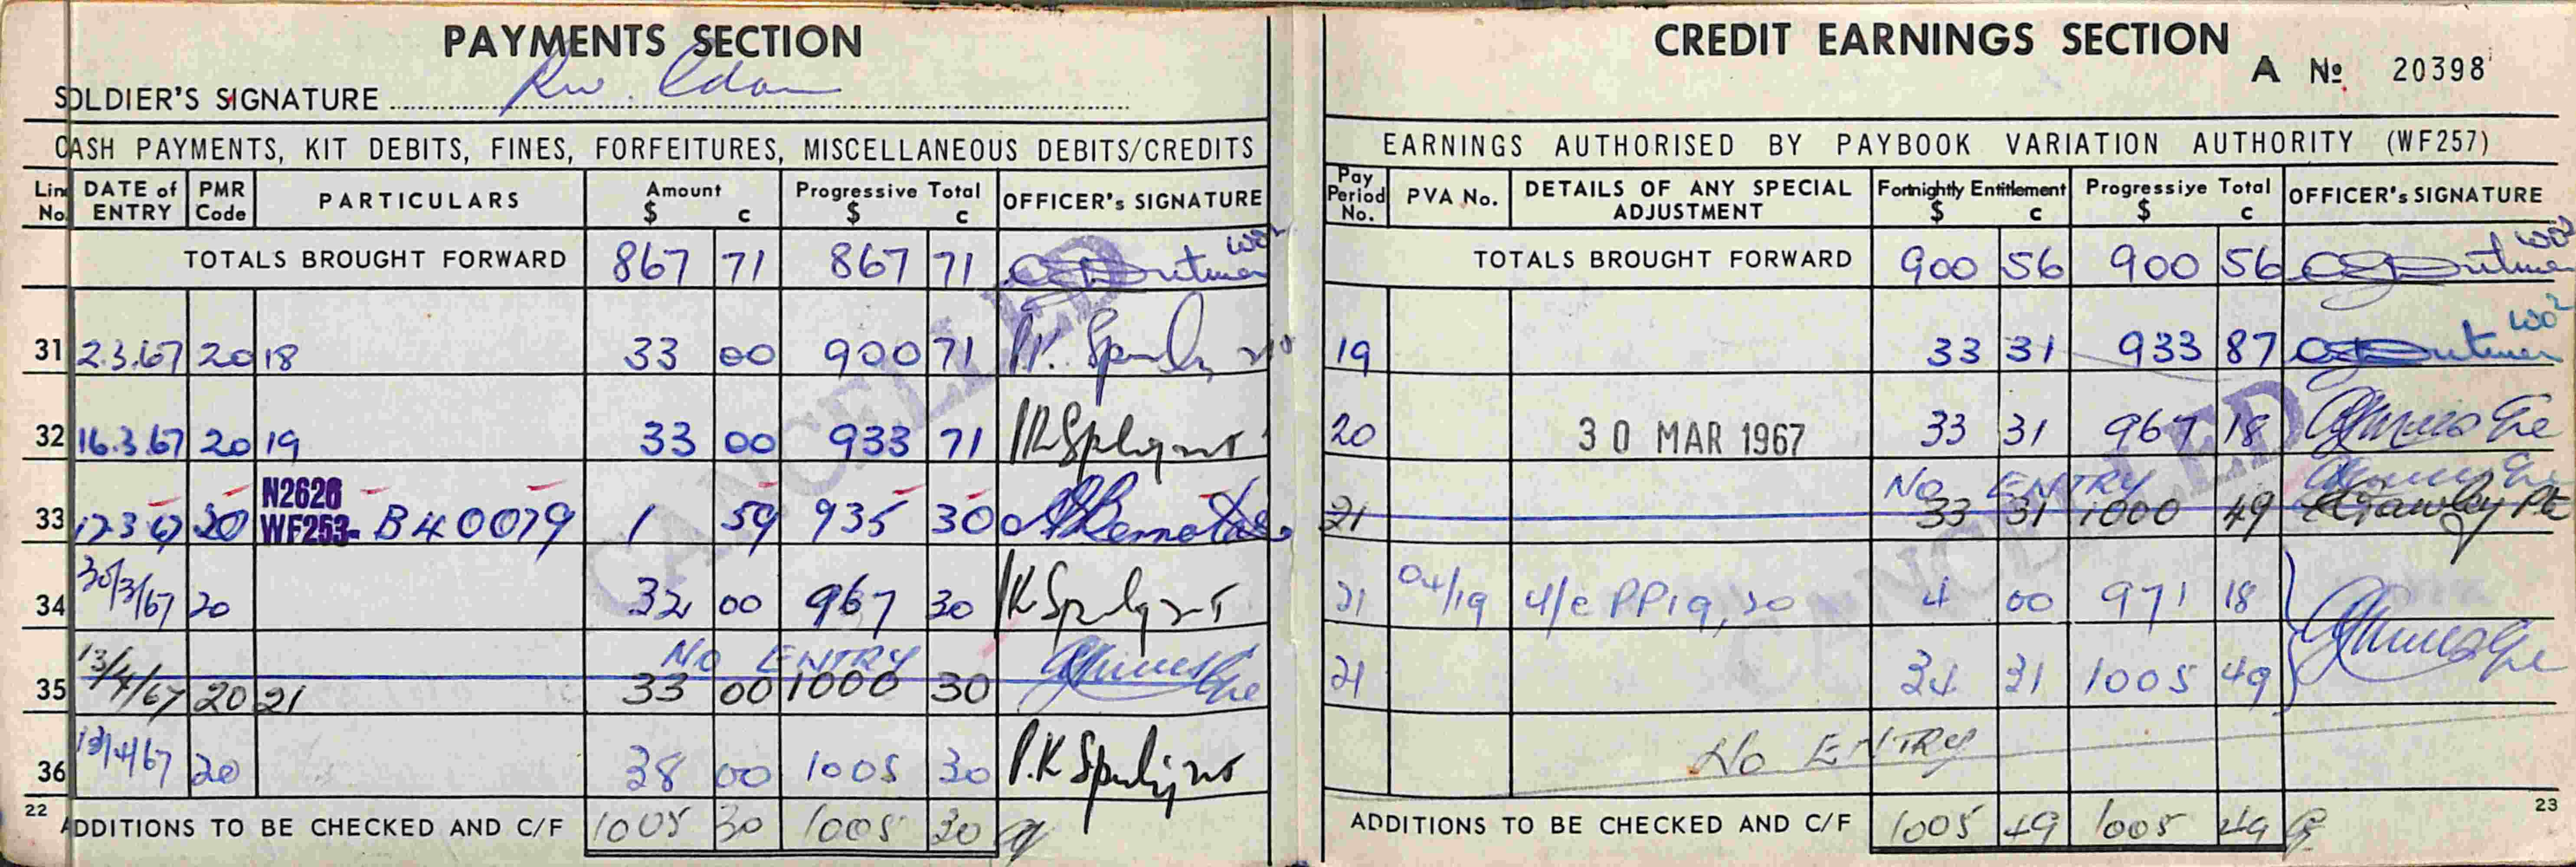 PAYMENTS SECTION
SOLDIER'S SIGNATURE
CASH PAYMENTS, KIT DEBITS, FINES, FORFEITURES, MISCELLANEOUS DEBITS/CREDITS
Line No. DATE of ENTRY PMR Code PARTICULARS Amount $ c Progressive Total $ c OFFICER's SIGNATURE
TOTALS BROUGHT FORWARD 867 71 867 71 WO2
31 2.3.67 20 18 33 00 900 71
32 16.3.67 20 19 33 00 933 71
N2626
33 17 3 67 20 WF253- B40079 1 59 935 30
34 30/3/67 20 32 00 967 30
NO ENTRY
35 13/4/67 20 21 33 00 1000 30
36 13/4/67 20 38 00 1005 30
22 ADDITIONS TO BE CHECKED AND C/F 1005 30 1005 30
CANCELLED
CREDIT EARNINGS SECTION
A No 20398
EARNINGS AUTHORISED BY PAYBOOK VARIATION AUTHORITY (WF257)
Pay Period No. PVA No. DETAILS OF ANY SPECIAL ADJUSTMENT Fortnightly Entitlement $ c Progressive Total $ c OFFICER's SIGNATURE
TOTALS BROUGHT FORWARD 900 56 900 56 WO2
19 33 31 933 87 WO2
20 30 MAR 1967 33 31 967 18
NO ENTRY
21 33 31 1000 49
21 04/19 PP19, 20 4 00 971 18
21 34 31 1005 49
NO ENTRY
ADDITIONS TO BE CHECKED AND C/F 1005 49 1005 49
23
CANCELLED